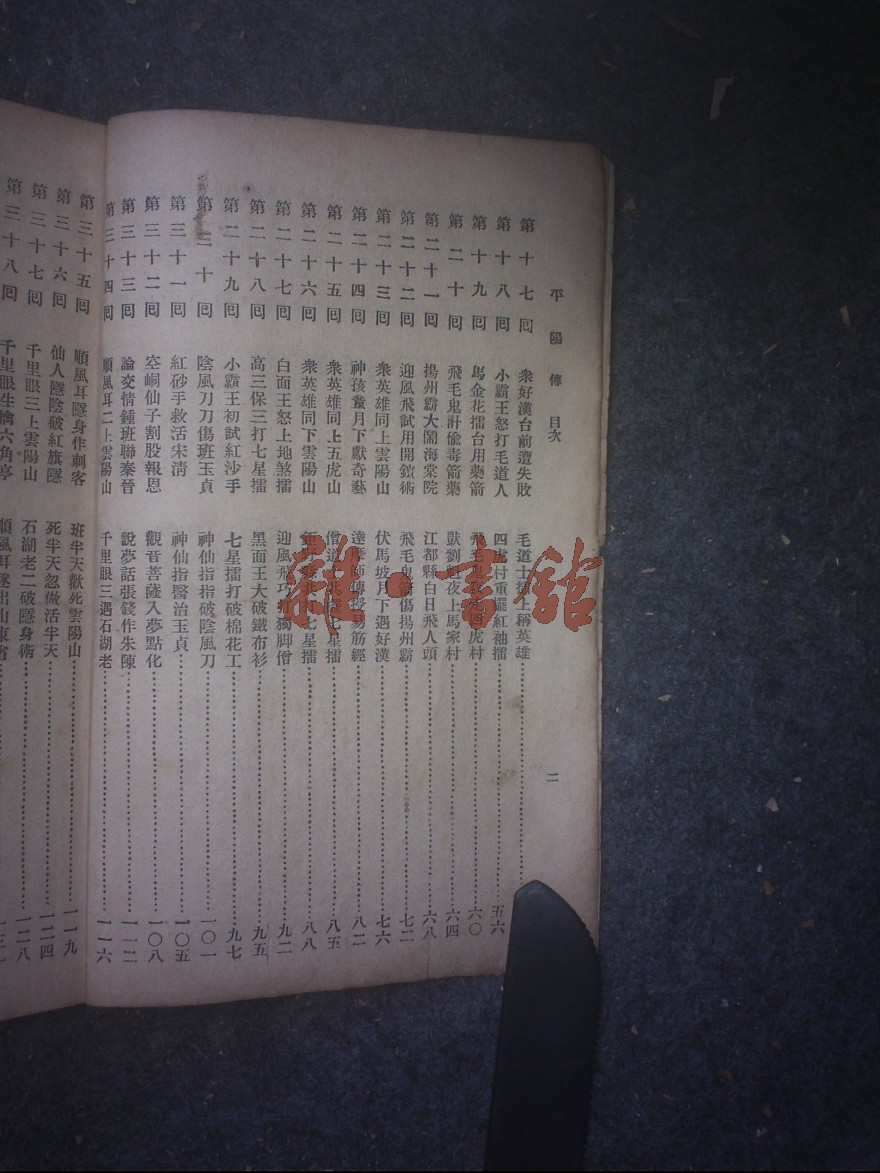 平陽傳 目次 二
第十七囘 衆好漢台前遭失敗 毛道士擂上稱英雄
第十八囘 小霸王怒打毛道人 四虎村重擺紅袖擂 五六
第十九囘 馬金花擂台用藥箭 飛毛鬼 虎村 六〇
第二十囘 飛毛鬼計偷毒箭藥 獃劉魁夜上馬家村 六四
第二十一囘 揚州霸大鬧海棠院 江都縣白日飛人頭 六八
第二十二囘 迎風飛試用開鎖術 飛毛鬼箭傷揚州霸 七二
第二十三囘 衆英雄同上雲陽山 伏馬坡月下遇好漢 七六
第二十四囘 神孩童月下獻奇藝 達摩師傳授易筋經 八二
第二十五囘 衆英雄同上五虎山 僧道 七星擂 八五
第二十六囘 衆英雄同下雲陽山 七星擂 八八
第二十七囘 白面王怒上地煞擂 迎風飛巧打獨脚僧 九二
第二十八囘 高三保三打七星擂 黑面王大破鐵布衫 九五
第二十九囘 小霸王初試紅沙手 七星擂打破棉花工 九七
第三十囘 陰風刀刀傷班玉貞 神仙指指破陰風刀 一〇一
第三十一囘 紅砂手救活宋清 神仙指醫治玉貞 一〇五
第三十二囘 空峒仙子割股報恩 觀音菩薩入夢點化 一〇八
第三十三囘 論交情鍾班聯秦晉 說夢話張錢作朱陳 一一二
第三十四囘 順風耳二上雲陽山 千里眼三遇石湖老 一一六
第三十五囘 順風耳隱身作刺客 班半天獻死雲陽山 一一九
第三十六囘 仙人隱陰破紅旗隱 死半天忽做活半天 一二四
第三十七囘 千里眼三上雲陽山 石湖老二破隱身術 一二八
第三十八囘 千里眼生擒六角亭 順風耳逐出山東省
雜·書館